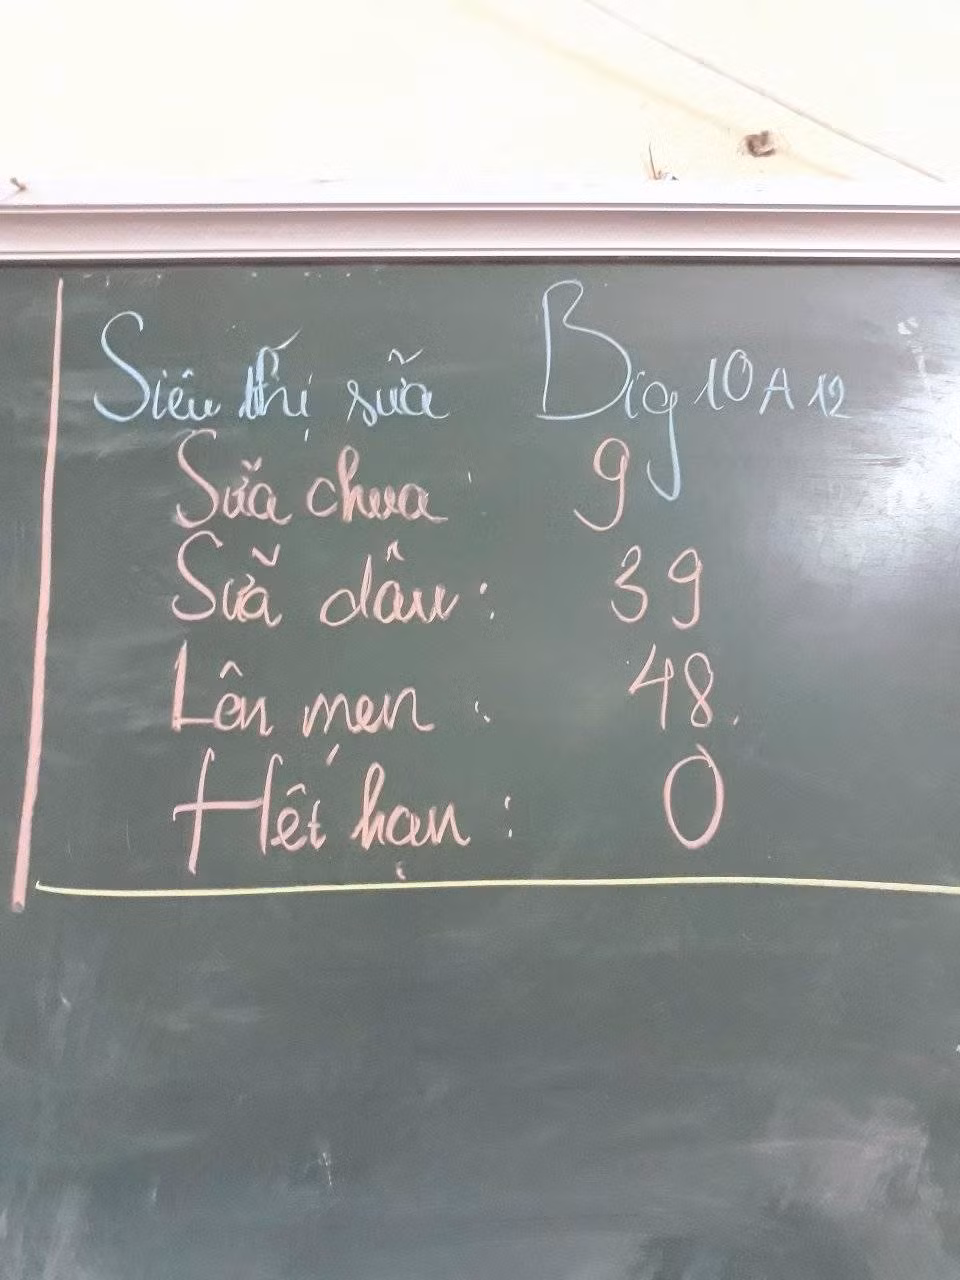 Siêu thị sữa Big 10A12
Sữa chua 9
Sữa dâu: 39
Lên men: 48.
Hết hạn: 0